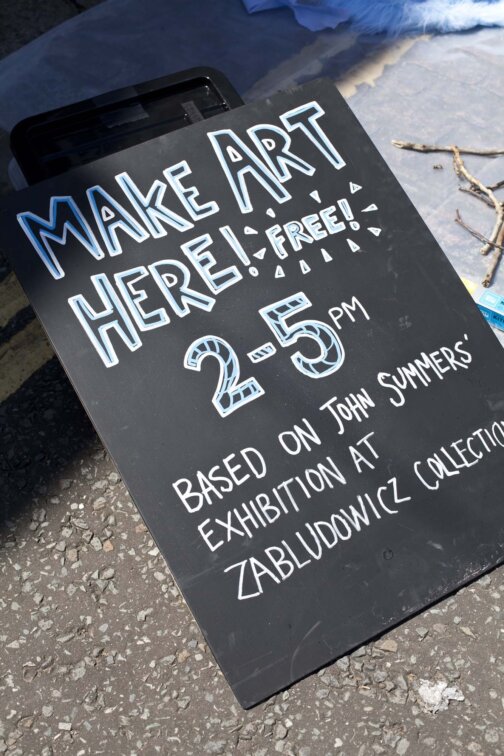 MAKE ART
HERE! FREE!
2-5PM
BASED ON JOHN SUMMERS'
EXHIBITION AT
ZABLUDOWICZ COLLECTION